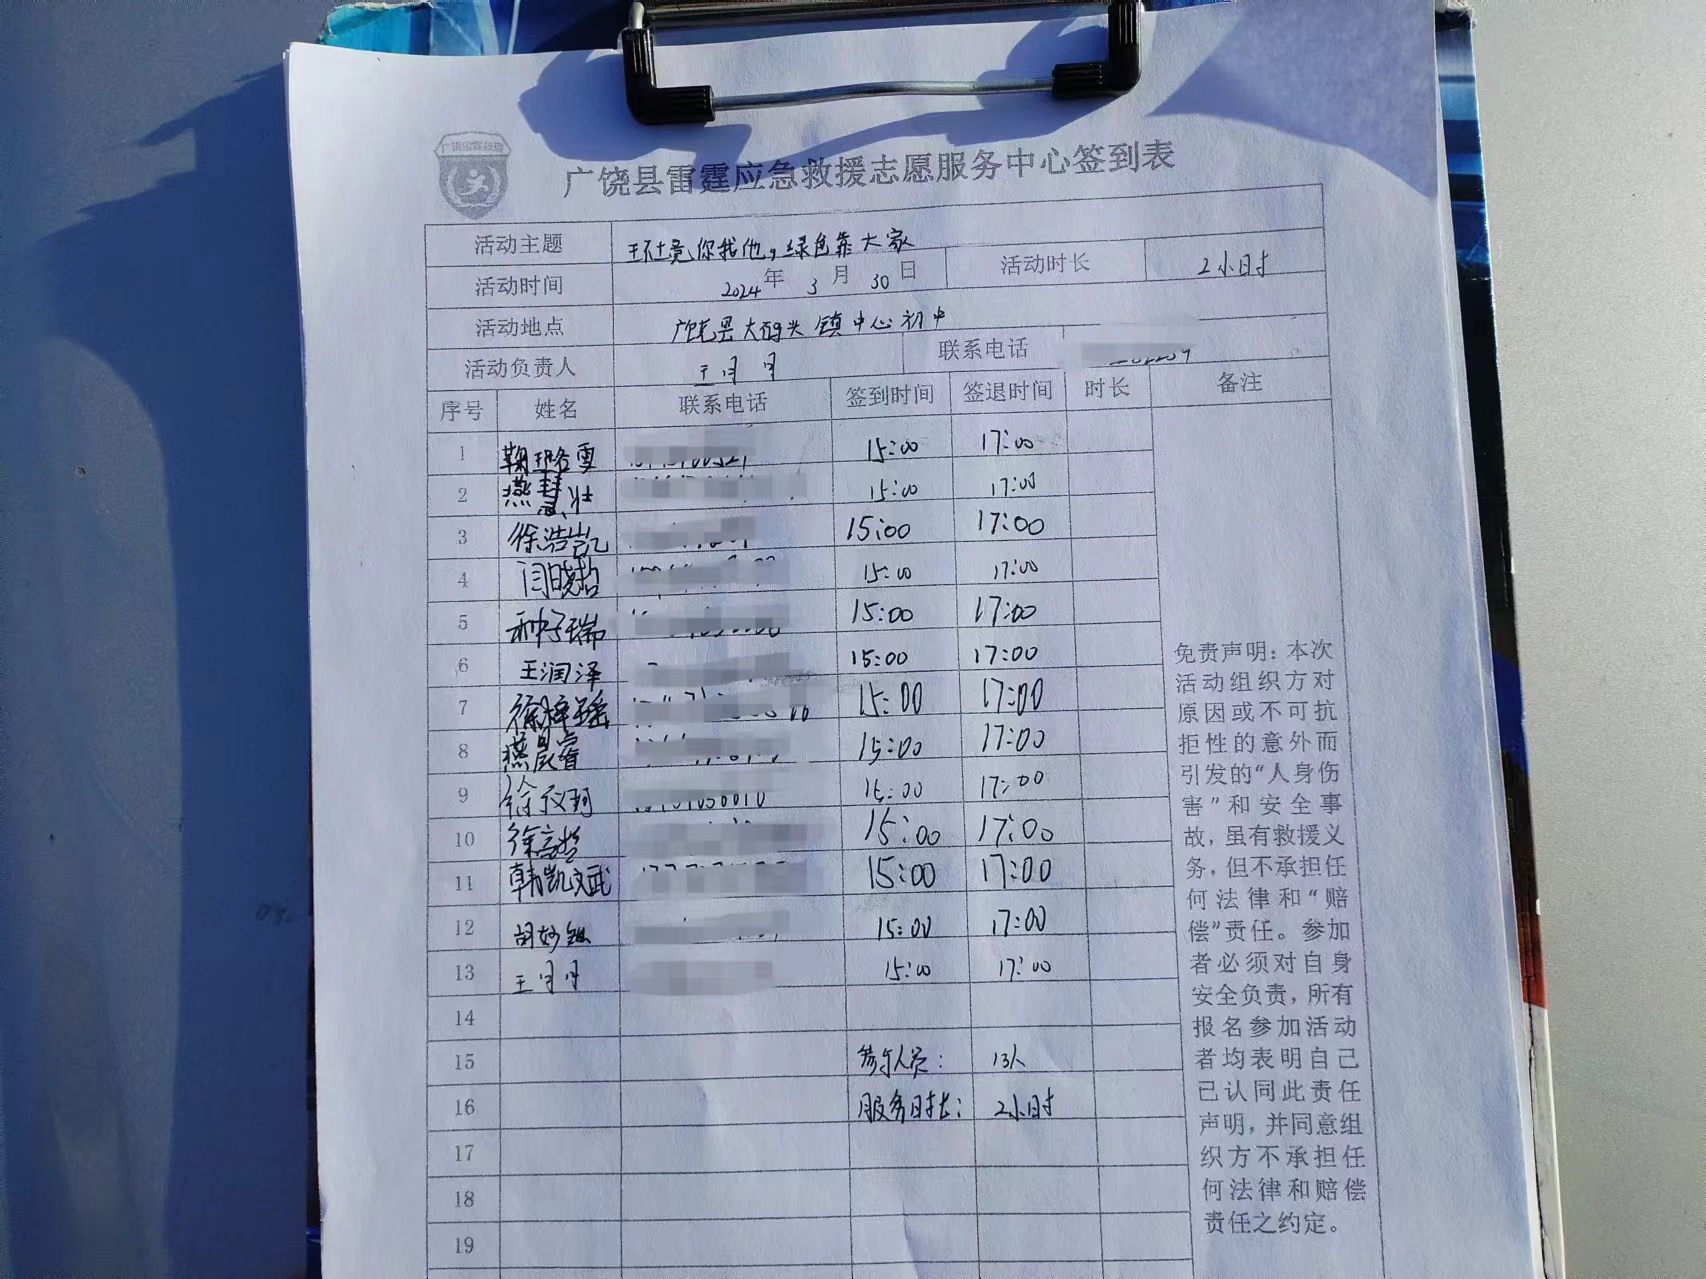 广饶县雷霆应急救援志愿服务中心签到表
活动主题 环境你我他，绿色靠大家
活动时间 2024年3月30日 活动时长 2小时
活动地点 广饶县大码头镇中心初中
活动负责人 王月月 联系电话
序号 姓名 联系电话 签到时间 签退时间 时长 备注
1 鞠璐雪 15:00 17:00
2 燕慧壮 15:00 17:00
3 徐浩凯 15:00 17:00
4 闫晓哲 15:00 17:00
5 种子瑞 15:00 17:00
6 王润泽 15:00 17:00
7 徐梓瑶 15:00 17:00
8 燕晨睿 15:00 17:00
9 徐仪珂 15:00 17:00
10 徐 15:00 17:00
11 韩凯文武 15:00 17:00
12 胡妙 15:00 17:00
13 王月月 15:00 17:00
14
15 参与人员： 13人
16 服务时长： 2小时
17
18
19
免责声明：本次
活动组织方对
原因或不可抗
拒性的意外而
引发的“人身伤
害”和安全事
故，虽有救援义
务，但不承担任
何法律和“赔
偿”责任。参加
者必须对自身
安全负责，所有
报名参加活动
者均表明自己
已认同此责任
声明，并同意组
织方不承担任
何法律和赔偿
责任之约定。